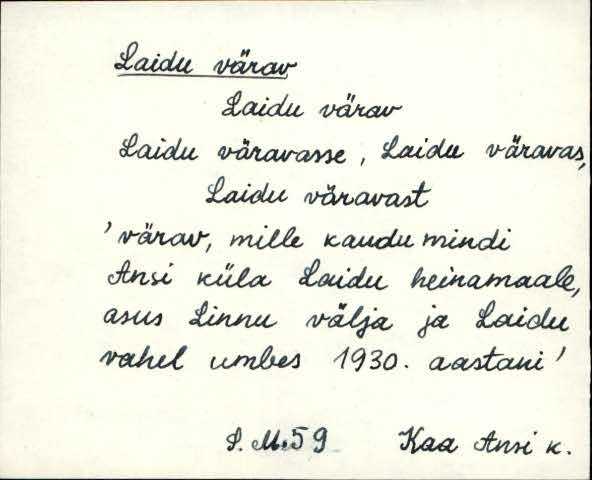 Laidu värav
Laidu värav
Laidu väravasse, Laidu väravas,
Laidu väravast
'värav, mille kaudu mindi
Ansi küla Laidu heinamaale,
asus Linnu välja ja Laidu
vahel umbes 1930. aastani'
S. M. 59 Kaa Ansi k.